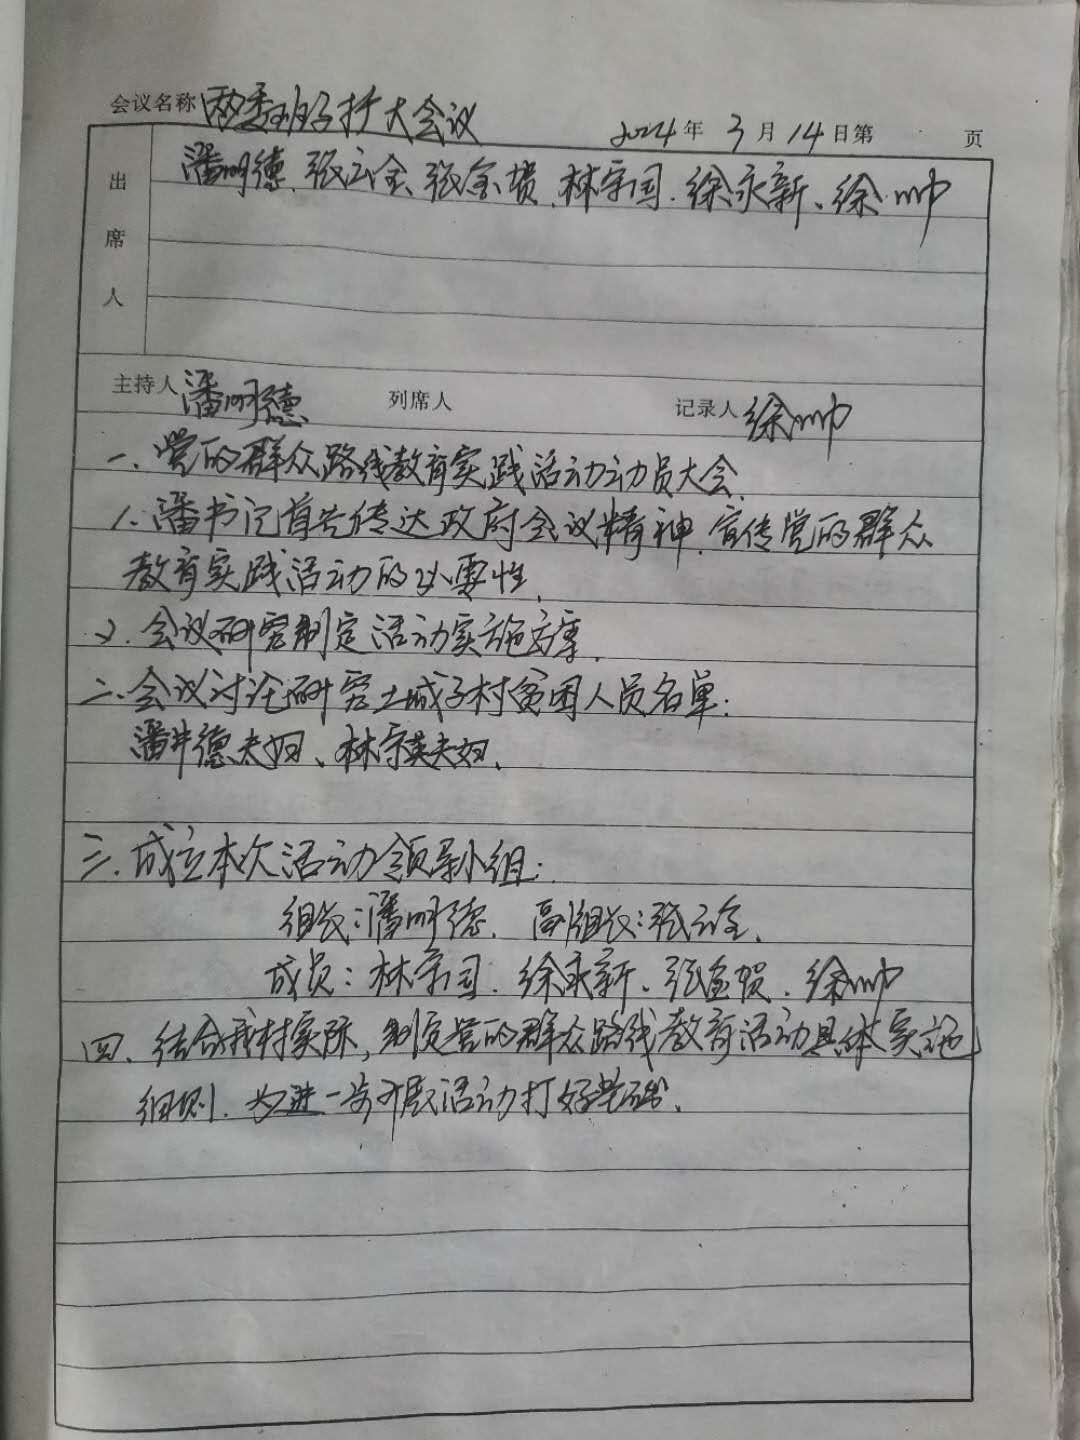 会议名称 两委班子扩大会议
2024年3月14日第 页
出席人
潘明德、张云金、张金贵、林宗国、徐永新、徐帅
主持人 潘明德 列席人 记录人 徐帅
一、党的群众路线教育实践活动动员大会.
1、潘书记首先传达政府会议精神、宣传党的群众
教育实践活动的必要性.
2、会议研究制定活动实施方案.
二、会议讨论研究土城子村贫困人员名单:
潘井德夫妇、林宗英夫妇、
三、成立本次活动领导小组:
组长:潘明德、副组长:张云金、
成员:林宗国、徐永新、张金贺、徐帅
四、结合我村实际,制定党的群众路线教育活动具体实施
细则、为进一步开展活动打好基础、